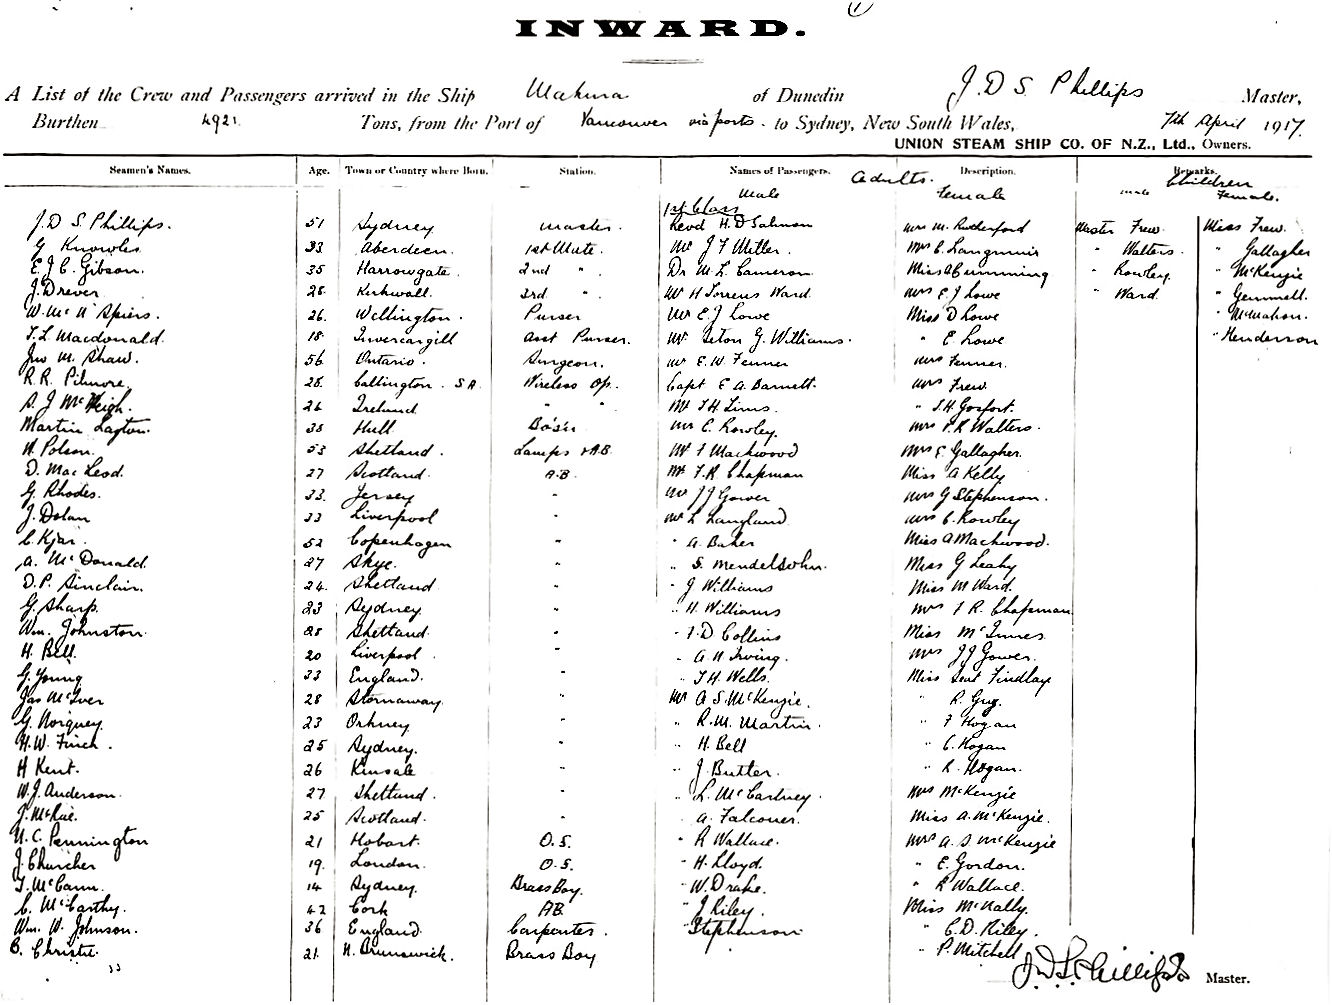 INWARD.
A List of the Crew and Passengers arrived in the Ship Makura of Dunedin J. D S. Phillips Master,
Burthen 4921 Tons, from the Port of Vancouver via ports to Sydney, New South Wales, 7th April 1917.
UNION STEAM SHIP CO. OF N.Z., Ltd., Owners.
Seamen's Names. Age. Town or Country where Born. Station. Names of Passengers. Adults. Description. Remarks. Children
Male Female male Female.
1st Class
J. D S. Phillips. 51 Sydney master. Revd H. D Salmon Mrs M. Rutherford Master Frew. Miss Frew.
G Knowles 33 Aberdeen. 1st Mate. Mr J F Miller. Mrs C. Langmuir " Walters. " Gallagher
E. J C. Gibson. 35 Harrowgate 2nd " Dr M. L. Cameron Miss A Cumming " Rowley " McKenzie
J. Drever 28 Kirkwall. 3rd. " Mr H Torrens Ward. Mrs E. J Lowe " Ward. " Gemmell.
W. Mc N Spiers. 26. Wellington. Purser Mr E. J Lowe Miss D Lowe " McMahon.
T. L Macdonald. 18 Invercargill asst Purser. Mr. Seton G. Williams. " E. Lowe " Henderson
Jno M. Shaw. 56. Ontario. Surgeon. Mr E. W. Fenner Mrs Fenner.
R. R. Pilmore. 28. Callington. S A. Wireless Op. Capt E A. Barnett. Mrs Frew
S. J McVeigh. 26 Ireland " " Mr T H Lims. " J. H Gosfort.
Martin Layton. 35 Hull Bo's'n Mr E. Rowley. Mrs P. R Walters.
N. Polson. 53 Shetland. Lamps & AB. Mr F Mackwood Mrs E. Gallagher.
D. MacLeod. 27 Scotland. A.B. Mr F. R. Chapman Miss A Kelly
G. Rhodes. 33. Jersey " Mr J J Gower Mrs G Stephenson.
J. Dolan 33 Liverpool " Mr L Langland Mrs C. Rowley
C. Kjar. 52 Copenhagen " " A. Baker Miss A Mackwood.
A. McDonald. 27 Skye. " " S. Mendelsohn. Miss G Leahy
D. P. Sinclair. 24. Shetland " " J Williams Miss M Ward.
G. Sharp. 23 Sydney " " H. Williams Mrs F R. Chapman
Wm. Johnston. 28 Shetland. " " F. D Collins Miss McInnes.
H. Bell. 20 Liverpool. " " A. N Irving. Mrs J J Gower.
G. Young 33 England. " " T. H. Wells. Miss Findlay
Jas McIver 28 Stornaway. " Mr A S. McKenzie. " R. Guy.
G. Norquay. 23 Orkney " " R. M. Martin. " F Hogan
H. W. Finch. 25 Sydney. " " H. Bell " C. Hogan
H Kent. 26 Kinsale " " J. Butler. " R. Hogan.
W. J. Anderson. 27 Shetland. " " L. McCartney. Mrs McKenzie
J. McRae. 25 Scotland. " " A. Falconer. Miss A. McKenzie.
N. C. Pennington 21 Hobart. O. S. " R Wallace. Mrs A. S McKenzie
J. Churcher 19. London. O. S. " H. Lloyd. " E. Gordon.
T. McCann. 14 Sydney. Brass Boy. " W. Drake. " R Wallace.
C. McCarthy. 42 Cork AB. " J Riley. Miss McNally.
Wm. W. Johnson. 36 England. Carpenter. " Stephenson " C. D. Riley.
B. Christie. 21. N. Brunswick. Brass Boy " P. Mitchell
33
J. D S. Phillips Master.